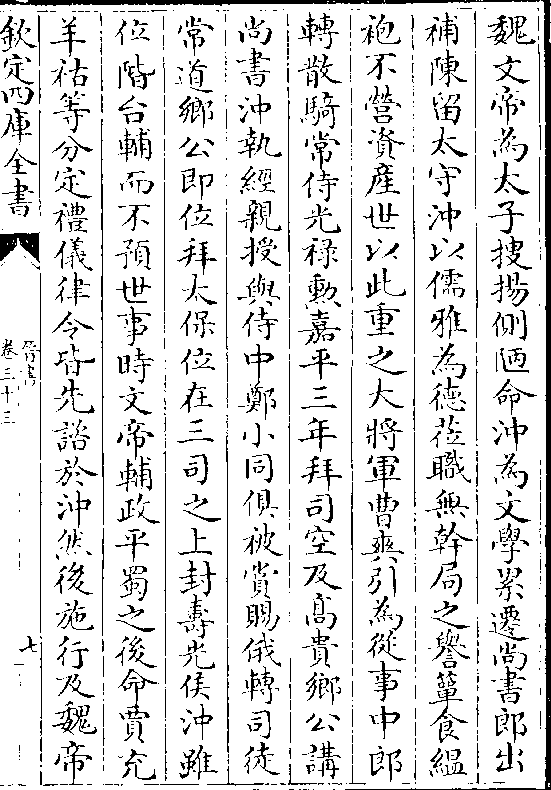 魏文帝為太子搜揚側陋命沖為文學累遷尚書郎出
補陳留太守沖以儒雅為德莅職無幹局之譽簞食緼
袍不營資産世以此重之大將軍曹爽引為從事中郎
轉散騎常侍光祿勲嘉平三年拜司空及髙貴鄉公講
尚書沖執經親授與侍中鄭小同俱被賞賜俄轉司徒
常道鄉公即位拜太保位在三司之上封壽光侯沖雖
位階台輔而不預世事時文帝輔政平蜀之後命賈充
羊祜等分定禮儀律令皆先諮於沖然後施行及魏帝
欽定四庫全書
晉書
卷三十三
七